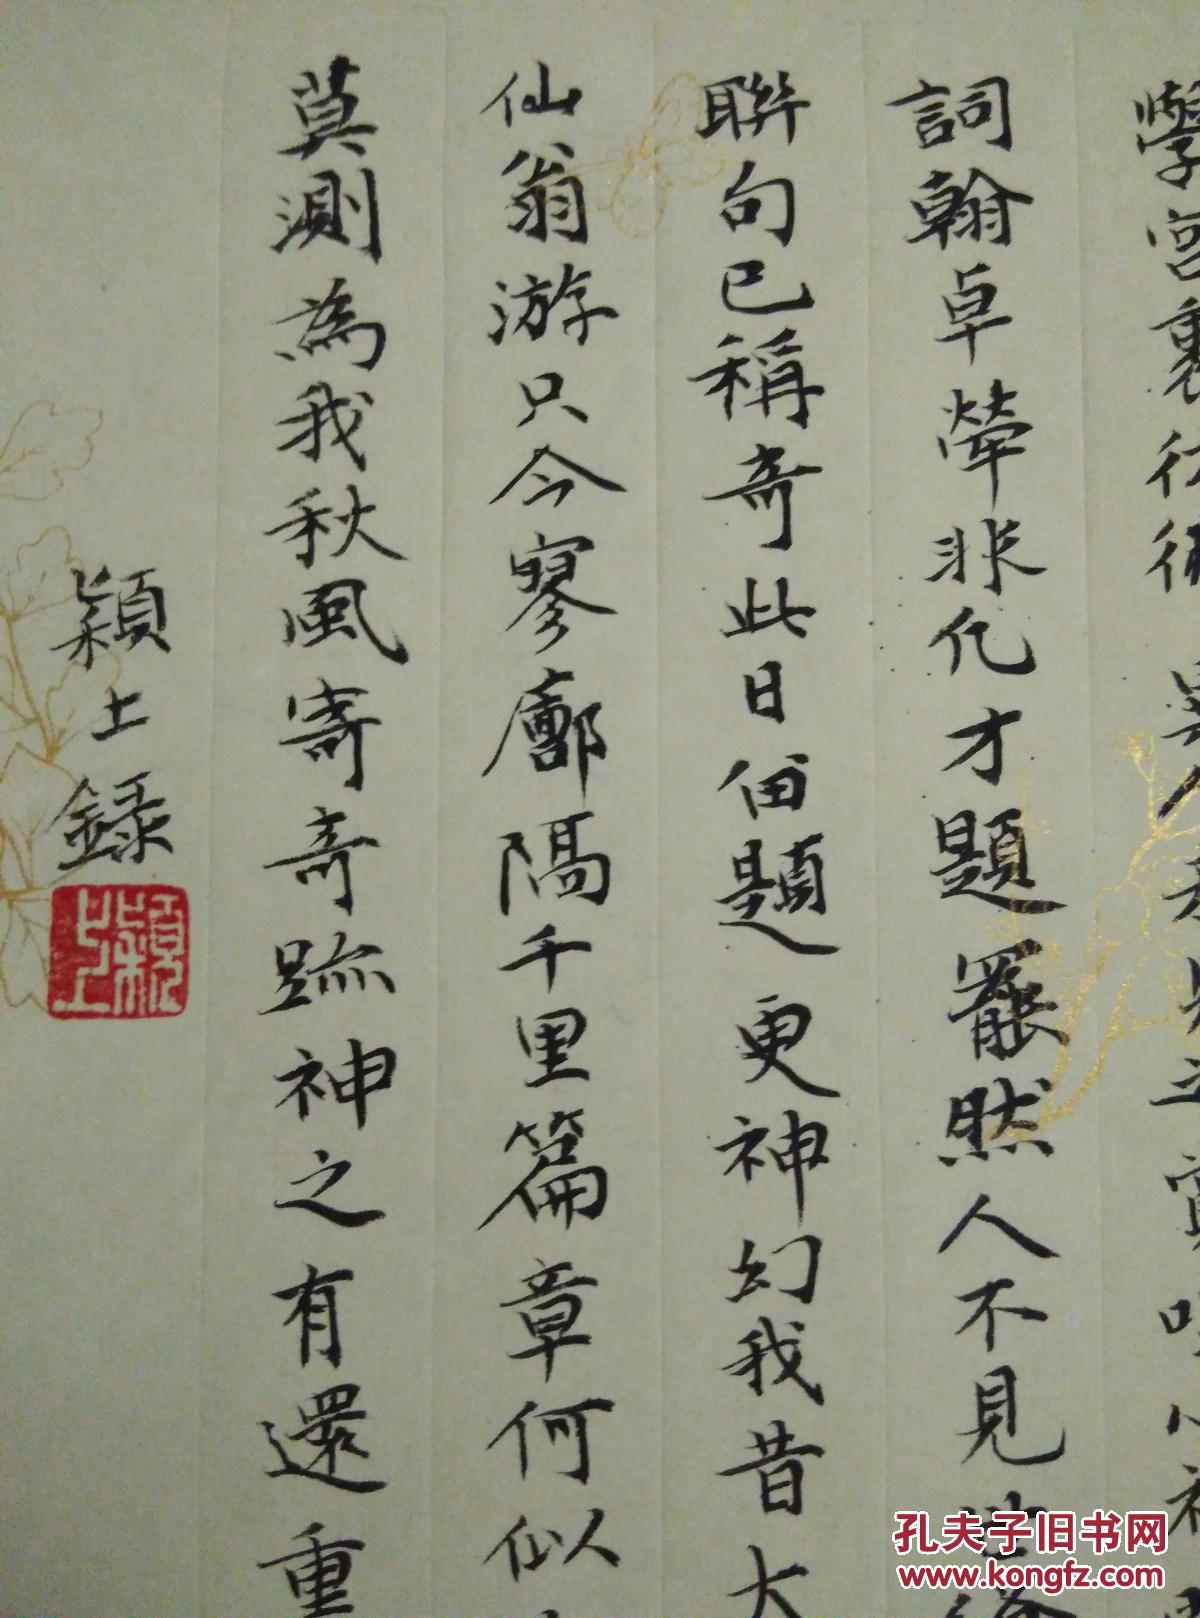 學宮裏
詞翰卓犖非凡才題罷然人不見
聯句已稱奇此日留題更神幻我昔大
仙翁游只今寥廓隔千里篇章何似
莫測為我秋風寄奇跡神之有還重
穎上錄
穎上
孔夫子旧书网
www.kongfz.com